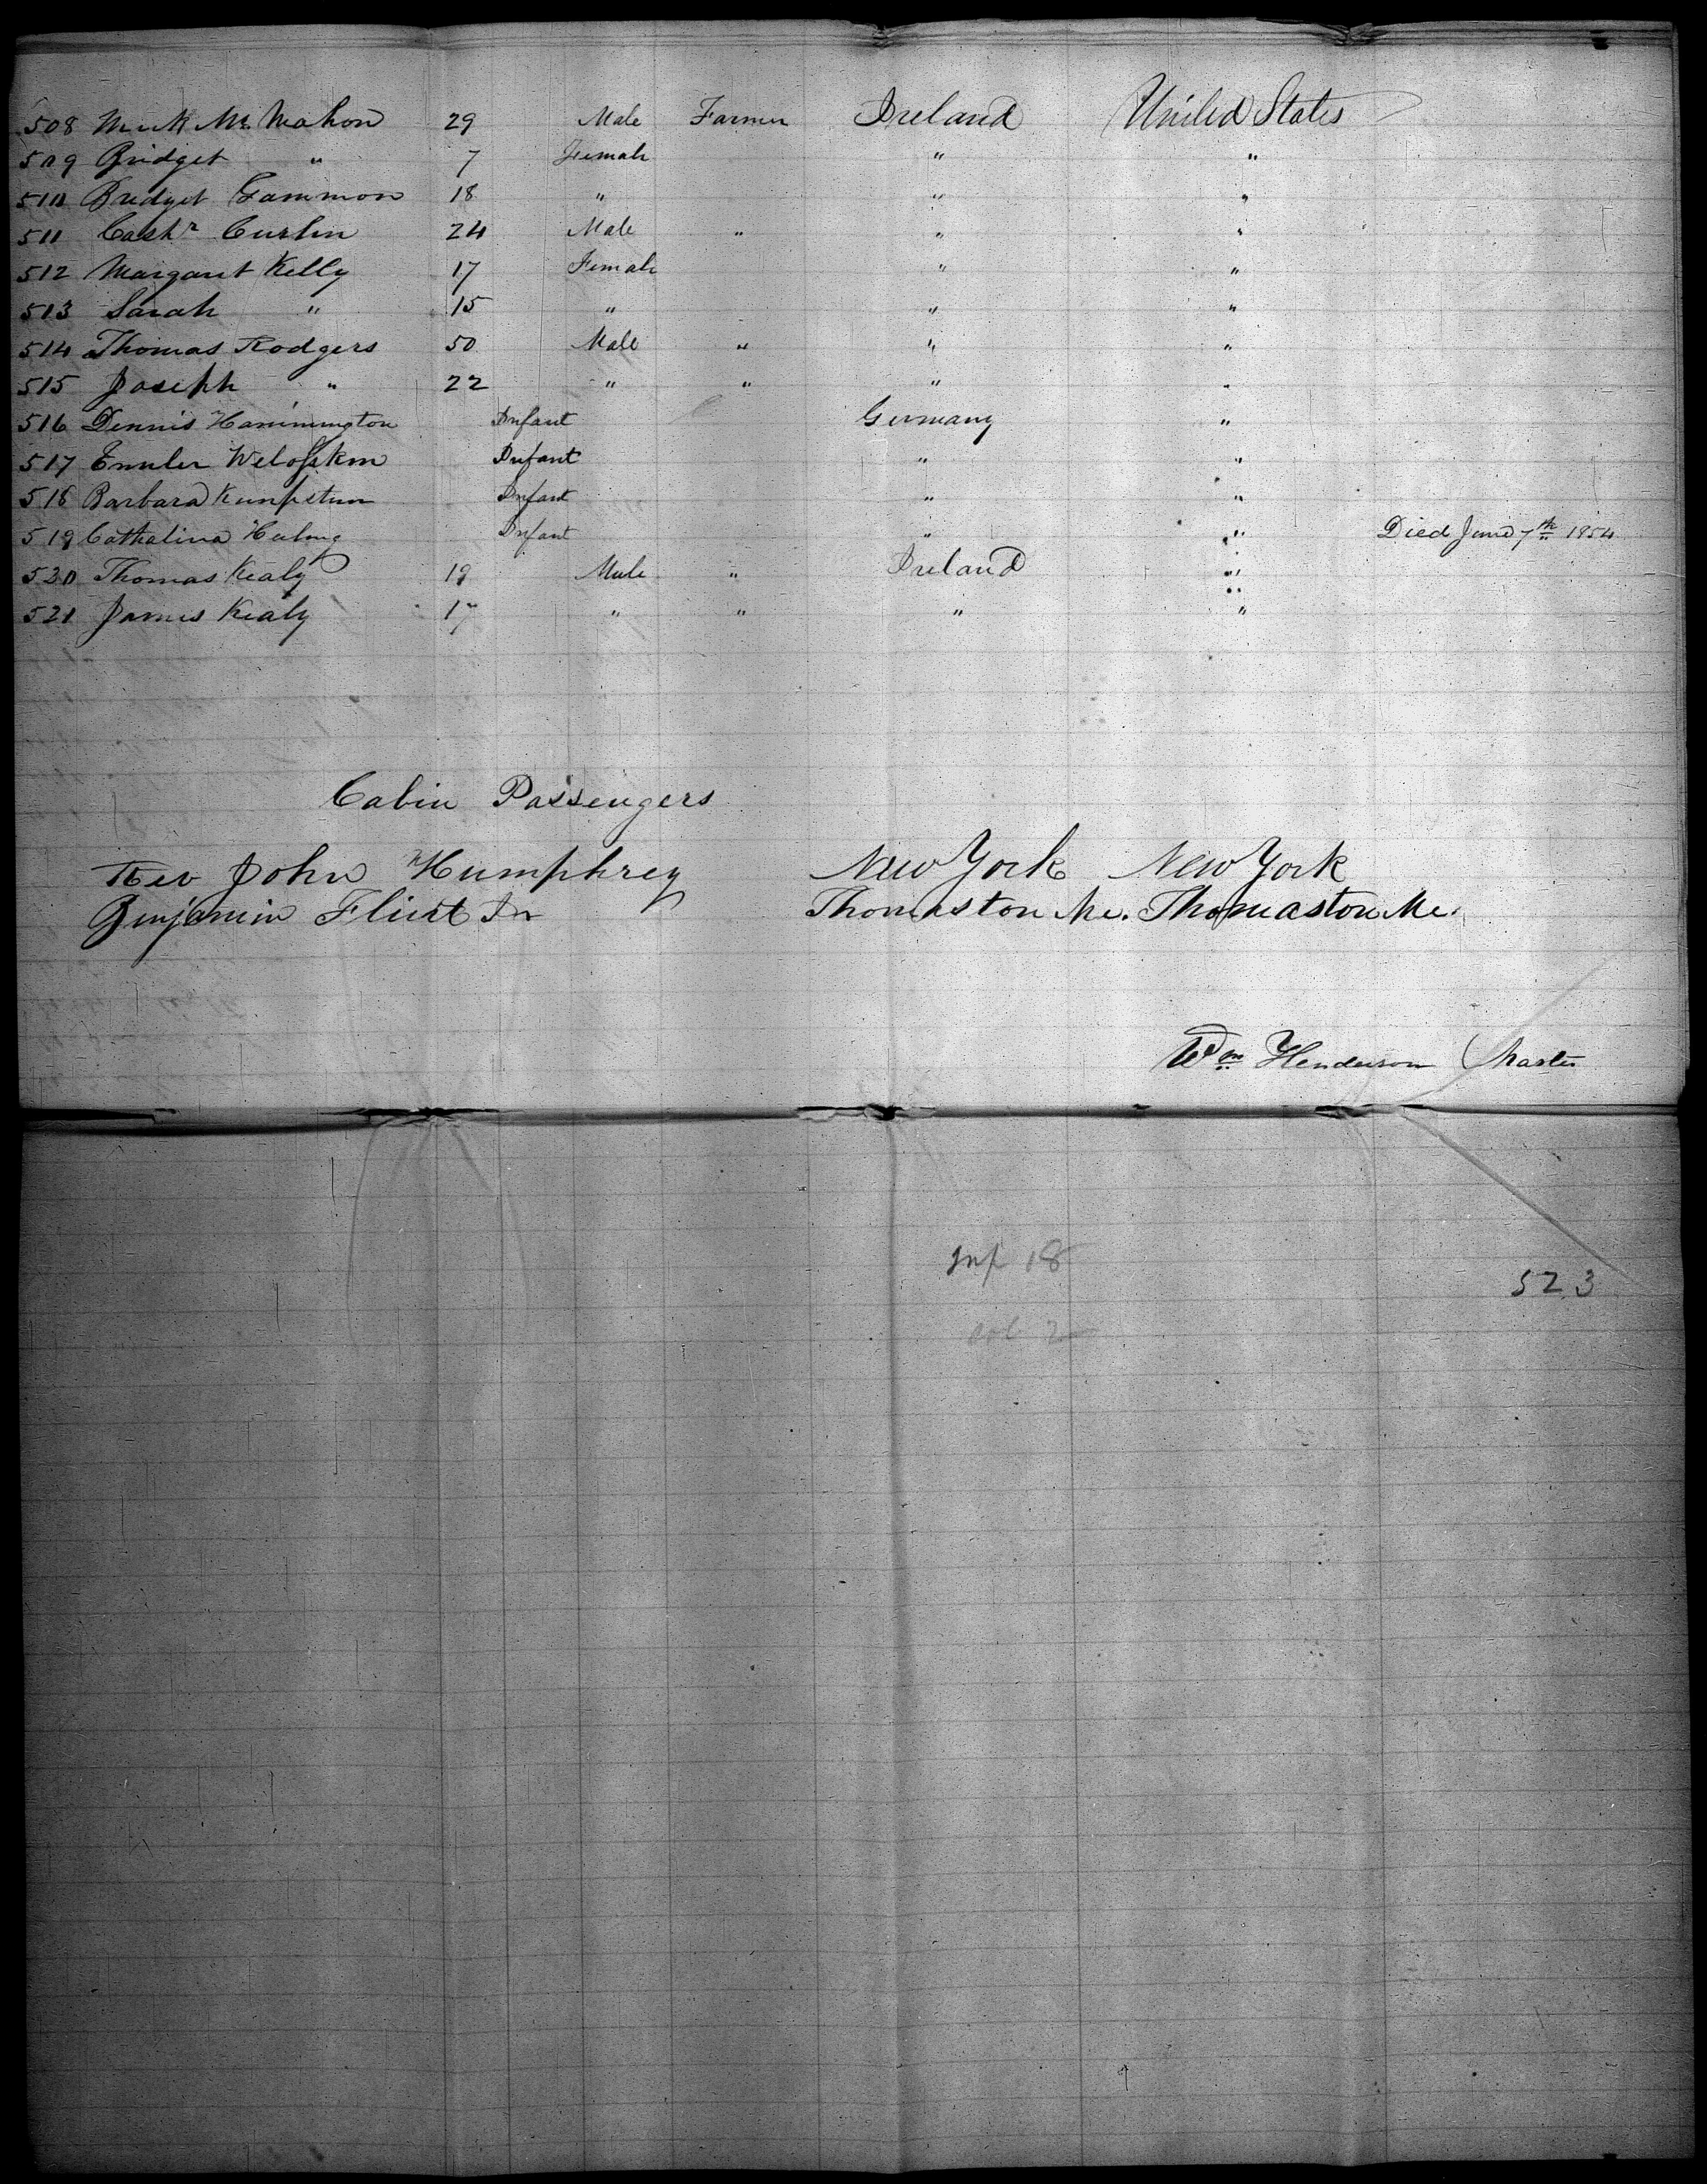 508 Mick Mc Mahon 29 Male Farmer Ireland United States
509 Bridget " 7 Female " "
510 Bridget Gammon 18 " " "
511 Cashr Curlin 24 Male " " "
512 Margaret Kelly 17 Female " "
513 Sarah " 15 " " "
514 Thomas Rodgers 50 Male " " "
515 Joseph " 22 " " " "
516 Dennis Hammington Infant Germany "
517 Infant " "
518 Barbara Infant " "
519 Cathalina Infant " " Died June 7th 1854
520 Thomas Kealy 19 Male " Ireland "
521 James Kealy 17 " " " "
Cabin Passengers
Rev John Humphrey New York New York
Benjamin Flint Jr Thomaston Me. Thomaston Me.
Wm Henderson Master
Inf 18
523
2